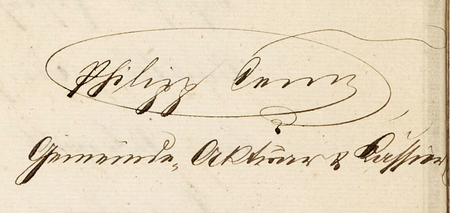 Philipp
Gemeinde, Aktuar & Cassier